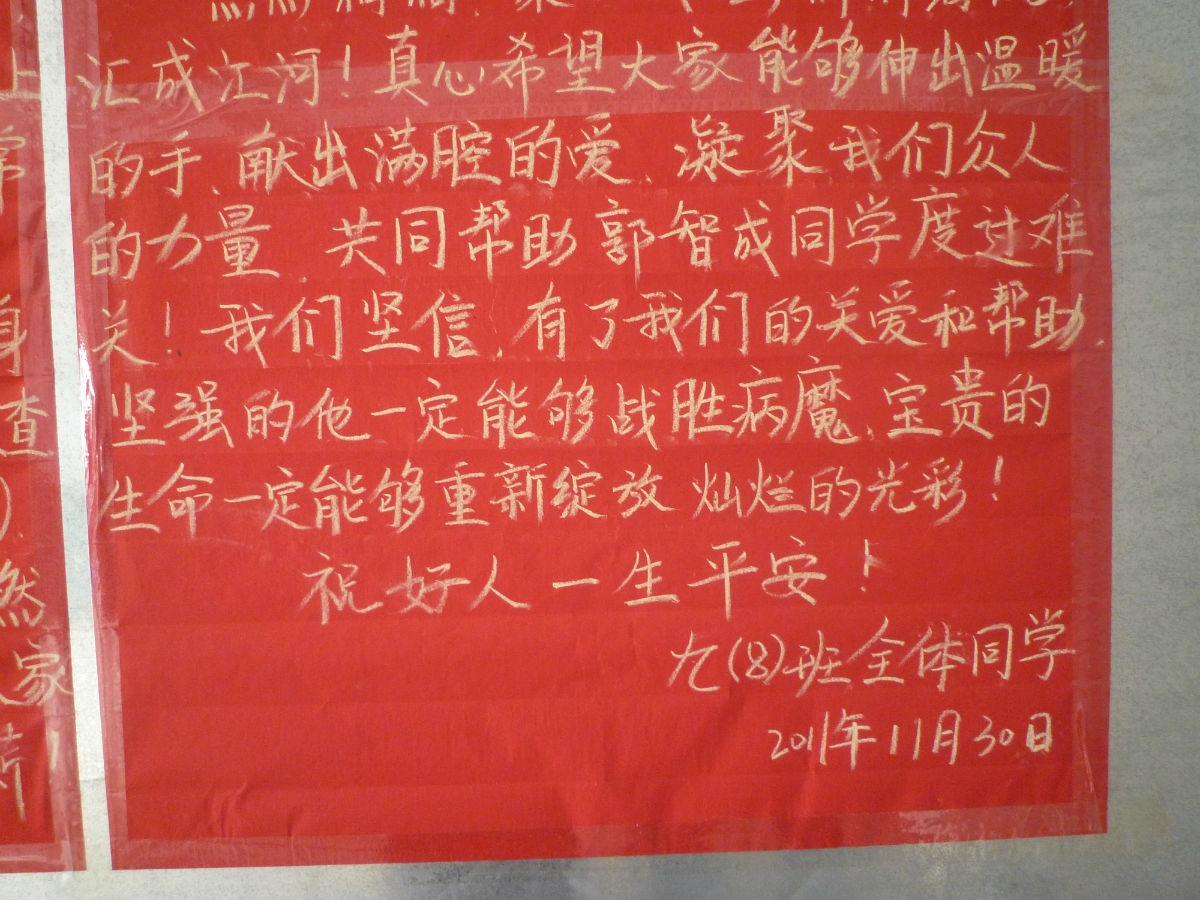 汇成江河!真心希望大家能够伸出温暖
的手,献出满腔的爱,凝聚我们众人
的力量,共同帮助郭智成同学度过难
关!我们坚信,有了我们的关爱和帮助,
坚强的他一定能够战胜病魔,宝贵的
生命一定能够重新绽放灿烂的光彩!
祝好人一生平安!
九(8)班全体同学
2011年11月30日
上
常
身
查
).
然
家